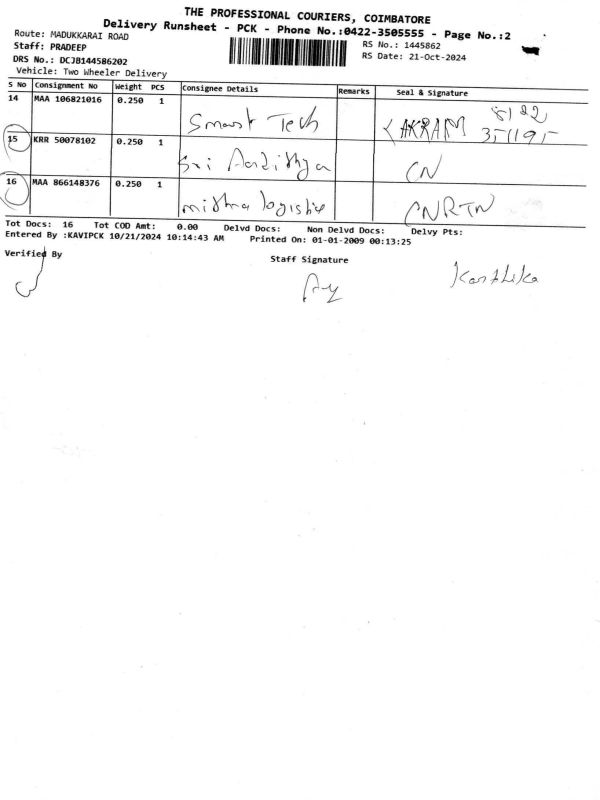 THE PROFESSIONAL COURIERS, COIMBATORE
Delivery Runsheet - PCK - Phone No.:0422-3505555 - Page No.:2
Route: MADUKKARAI ROAD
RS No.: 1445862
Staff: PRADEEP
RS Date: 21-Oct-2024
DRS No.: DCJB144586202
Vehicle: Two Wheeler Delivery
S No Consignment No Weight PCS Consignee Details Remarks Seal & Signature
14 MAA 106821016 0.250 1 Smart Tech AKRAM 8122 351195
15 KRR 50078102 0.250 1 Sri Aadithya CN
16 MAA 866148376 0.250 1 mithra logistic CNRTN
Tot Docs: 16 Tot COD Amt: 0.00 Delvd Docs: Non Delvd Docs: Delvy Pts:
Entered By :KAVIPCK 10/21/2024 10:14:43 AM Printed On: 01-01-2009 00:13:25
Verified By
Staff Signature
Karthika